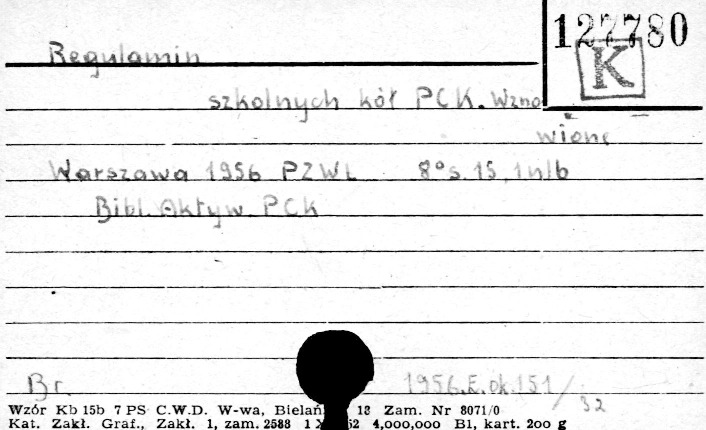 127780
K
Regulamin
szkolnych kół PCK. Wzno
wione
Warszawa 1956 PZWL 8° s. 15, 1 nlb
Bibl. Aktyw. PCK
Br. 1956.E.ok.151/32
Wzór Kb 15b 7 PS C.W.D. W-wa, Bielań 18 Zam. Nr 8071/0
Kat. Zakł. Graf., Zakł. 1, zam. 2588 1 X 52 4,000,000 B1, kart. 200 g